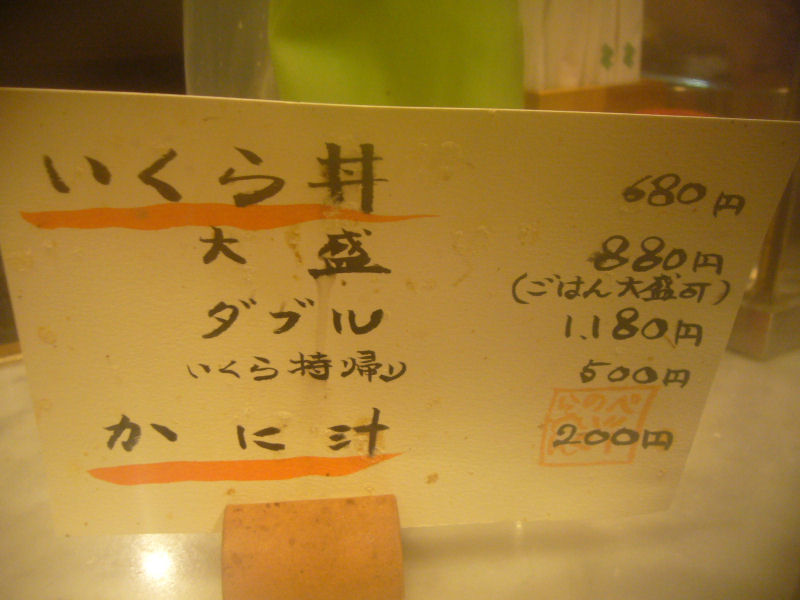 いくら丼 680円
大盛 880円
(ごはん大盛可)
ダブル 1,180円
いくら持帰り 500円
かに汁 200円